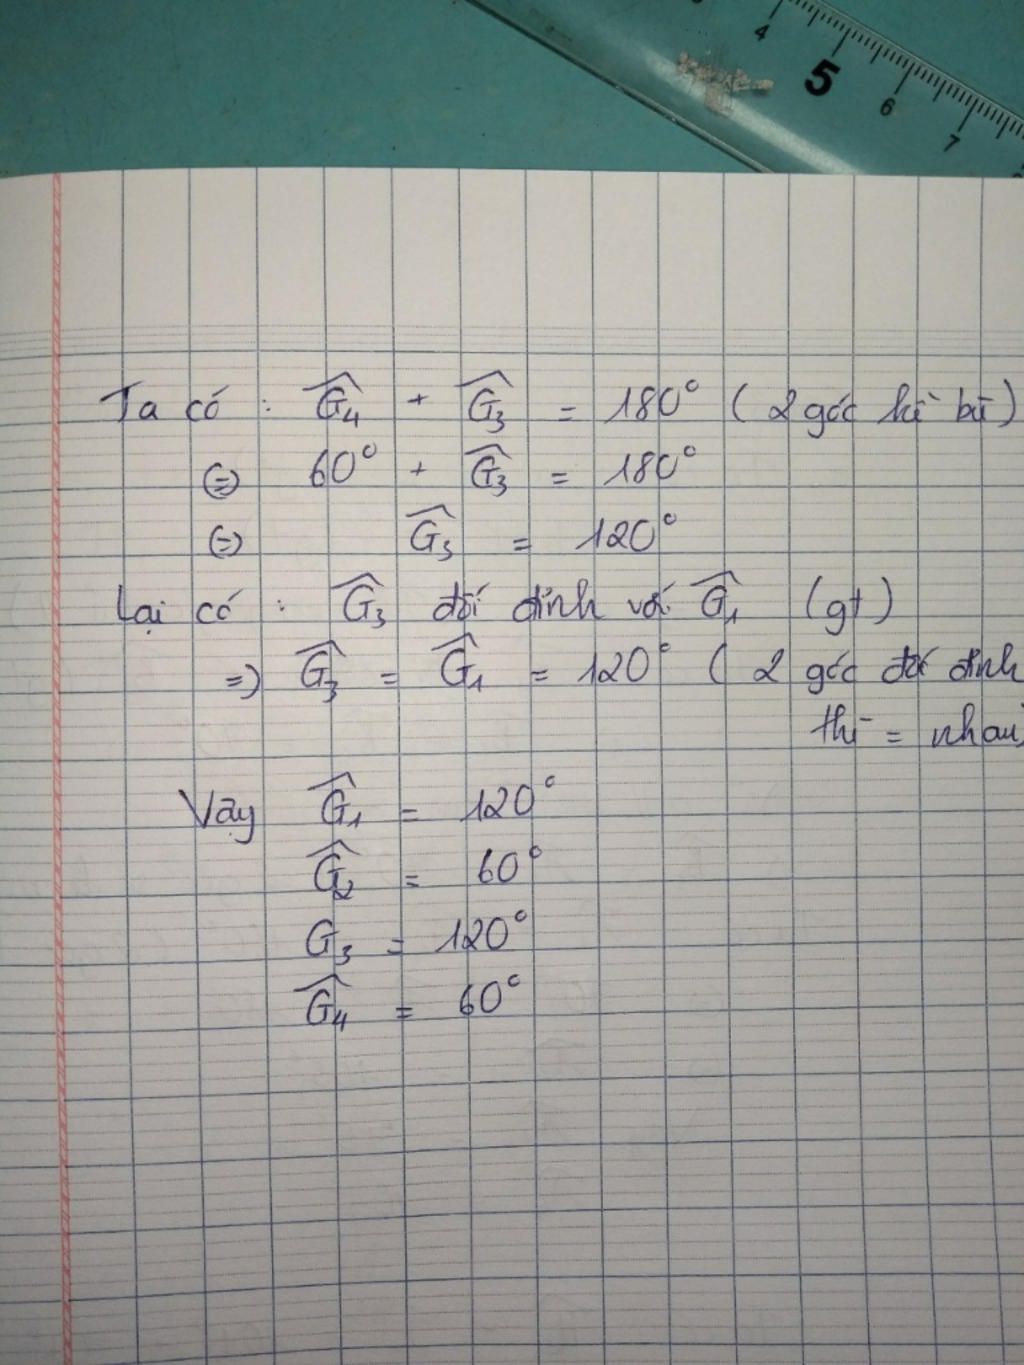 4 5 6 7
Ta có : Ĝ₄ + Ĝ₃ = 180° ( 2 góc kề bù )
⇔ 60° + Ĝ₃ = 180°
⇔ Ĝ₃ = 120°
Lại có : Ĝ₃ đối đỉnh với Ĝ₁ (gt)
=> Ĝ₃ = Ĝ₁ = 120° ( 2 góc đối đỉnh
thì = nhau)
Vậy Ĝ₁ = 120°
Ĝ₂ = 60°
G₃ = 120°
Ĝ₄ = 60°